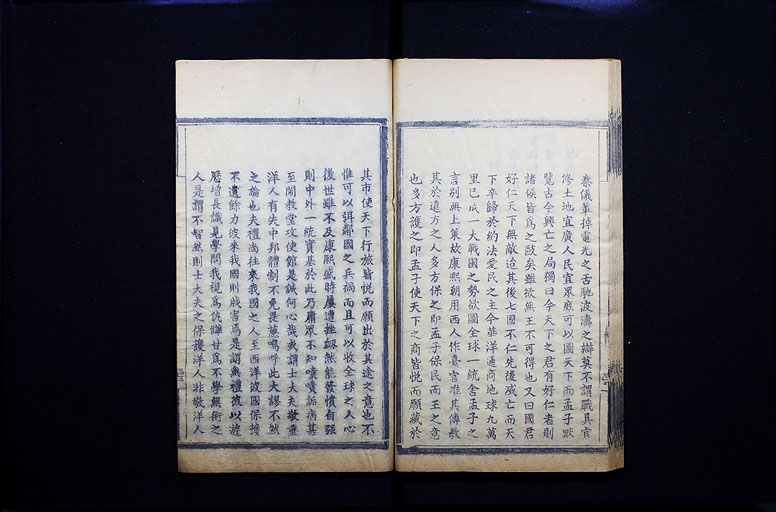 秦儀輩掉電光之舌馳波濤之辯莫不謂職具官
修土地宜廣人民宜眾庶可以圖天下而孟子默
覽古今興亡之局獨曰今天下之君有好仁者則
諸侯皆為之敺矣雖欲無王不可得也又曰國君
好仁天下無敵迨其後七國不仁先後滅亡而天
下卒歸於約法愛民之主今華洋通商地球九萬
里已成一大戰國之勢欲圖全球一統舍孟子之
言別無上策故康熙朝用西人作臺官准其傳教
其於遠方之人多方保之即孟子保民而王之意
也多方護之即孟子使天下之商皆悅而願藏於
其市使天下行旅皆悅而願出於其途之意也不
惟可以弭鄰國之兵禍而且可以收全球之人心
後世雖不及康熙盛時屢遭挫衂然能發憤自強
則中外一統實基於此乃庸眾不知嘖嘖詬病甚
至鬧教堂攻使館是誠何心哉或謂士大夫敬重
洋人有失中邦體制不免畏葸嗚呼此大謬不然
之論也夫禮尚往來我國之人至西洋彼國保護
不遺餘力彼來我國則戕害焉是謂無禮彼以游
歷增長識見學問我視為仇讎甘為不學無術之
人是謂不智然則士大夫之保護洋人非敬洋人